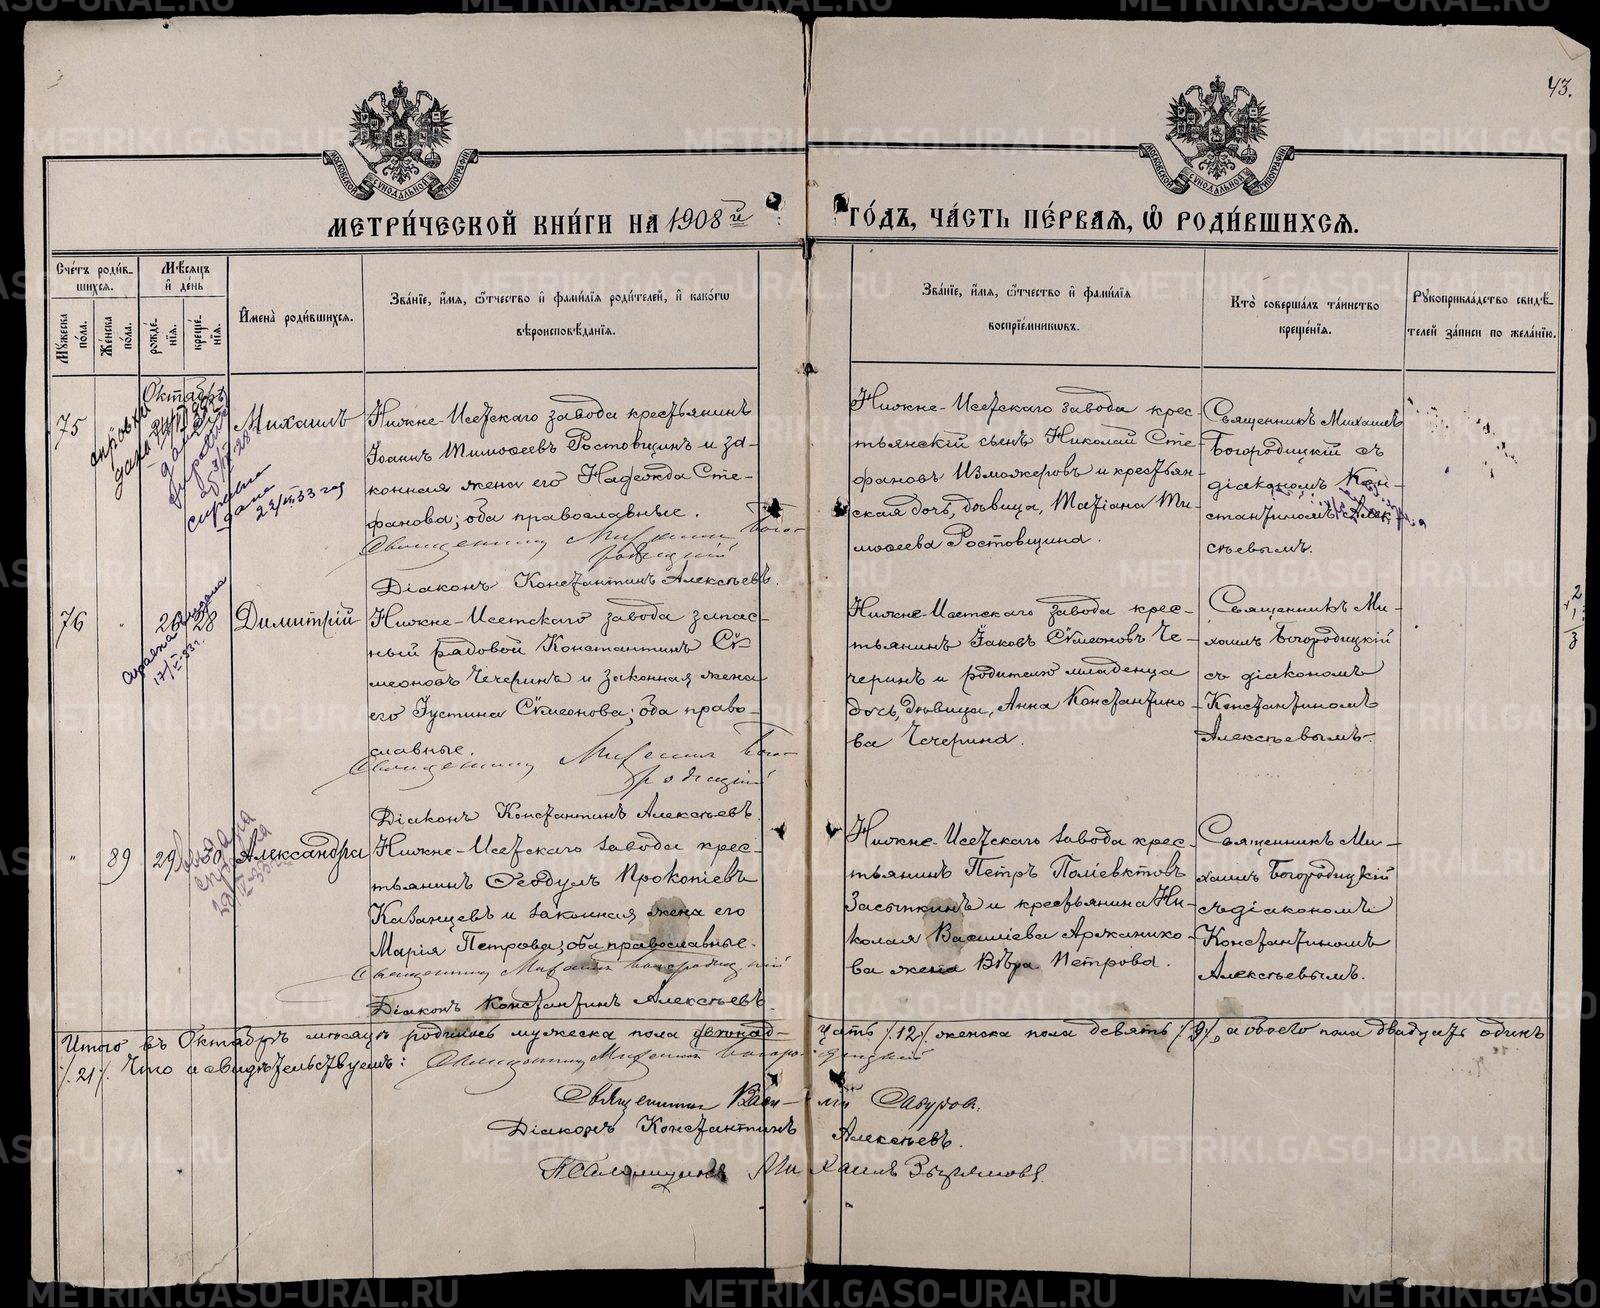 43.
МОСКОВСКОЙ СѴНОДАЛЬНОЙ ТИПОГРАФІИ
МОСКОВСКОЙ СѴНОДАЛЬНОЙ ТИПОГРАФІИ
МЕТРИ́ЧЕСКОЙ КНИ́ГИ НА 1908й ГО́ДЪ, ЧА́СТЬ ПЕ́РВАЯ, Ѡ РОДИ́ВШИХСЯ.
Сче́тъ роди́в-
шихся.
Мѣ́сяцъ
и́ де́нь
Му́жеска
по́ла.
Же́нска
по́ла.
рожде́-
нїя.
креще́-
нїя.
И́мена̀ роди́вшихся.
Зва́нїе, и́мя, ѻ́тчество и́ фами́лїя роди́телей, и́ како́гѡ
вѣроисповѣ́данїя.
Зва́нїе, и́мя, ѻ́тчество и́ фами́лїя
воспрїе́мникѡвъ.
Кто̀ соверша́лъ та́инство
креще́нїя.
Рꙋкоприкла́дство свидѣ́-
телей за́писи по жела́нїю.
Октябрь
75
Михаилъ
Нижне-Исетскаго завода крестьянинъ
Іоаннъ Тимоѳеевъ Ростовщинъ и за-
конная жена его Надежда Сте-
фанова; оба православные.
Священникъ Михаилъ Бого-
родицкій
Діаконъ Константинъ Алексѣевъ.
Нижне-Исетскаго завода крес-
тьянскій сынъ Николай Сте-
фановъ Изможеровъ и крестьян-
ская дочь, дѣвица, Татіана Ти-
моѳеева Ростовщина.
Священникъ Михаилъ
Богородицкій съ
діакономъ Кон-
стантиномъ Алек-
сѣевымъ.
справка
дана
22/VI 33 год
76
"
26
28
Димитрій
17/V-33г.
Нижне-Исетскаго завода запас-
ный рядовой Константинъ Сѵ-
меоновъ Чечеринъ и законная жена
его Іустина Сѵмеонова; оба право-
славные.
Священникъ Михаилъ Бого-
родицкій
Діаконъ Константинъ Алексѣевъ.
Нижне-Исетскаго завода крес-
тьянинъ Іаковъ Сѵмеоновъ Че-
черинъ и родителю младенца
дочь, дѣвица, Анна Константино-
ва Чечерина.
Священникъ Ми-
хаилъ Богородицкій
съ діакономъ
Константиномъ
Алексѣевымъ.
"
89
29
30
Александра
Нижне-Исетскаго завода крес-
тьянинъ Ѳеодулъ Прокопіевъ
Казанцевъ и законная жена его
Марія Петрова; оба православные.
Священникъ Михаилъ Богородицкій
Діаконъ Константинъ Алексѣевъ
Нижне-Исетскаго завода крес-
тьянинъ Петръ Поліевктовъ
Засыпкинъ и крестьянина Ни-
колая Василіева Аржанико-
ва жена Вѣра Петрова.
Священникъ Ми-
хаилъ Богородицкій
съ діакономъ
Константиномъ
Алексѣевымъ.
Итого въ Октябрѣ мѣсяцѣ родилось мужеска пола двенад- цать /.12/. женска пола девять /.9/., а обоего пола двадцать одинъ
/.21/. Что и свидѣтельствуемъ: Священникъ Михаилъ Богоро- дицкій
Священникъ Васи- лій Сабуров.
Діаконъ Константинъ Алексѣевъ.
Псаломщикъ Ми хаилъ Зырянов
METRIKI.GASO-URAL.RU